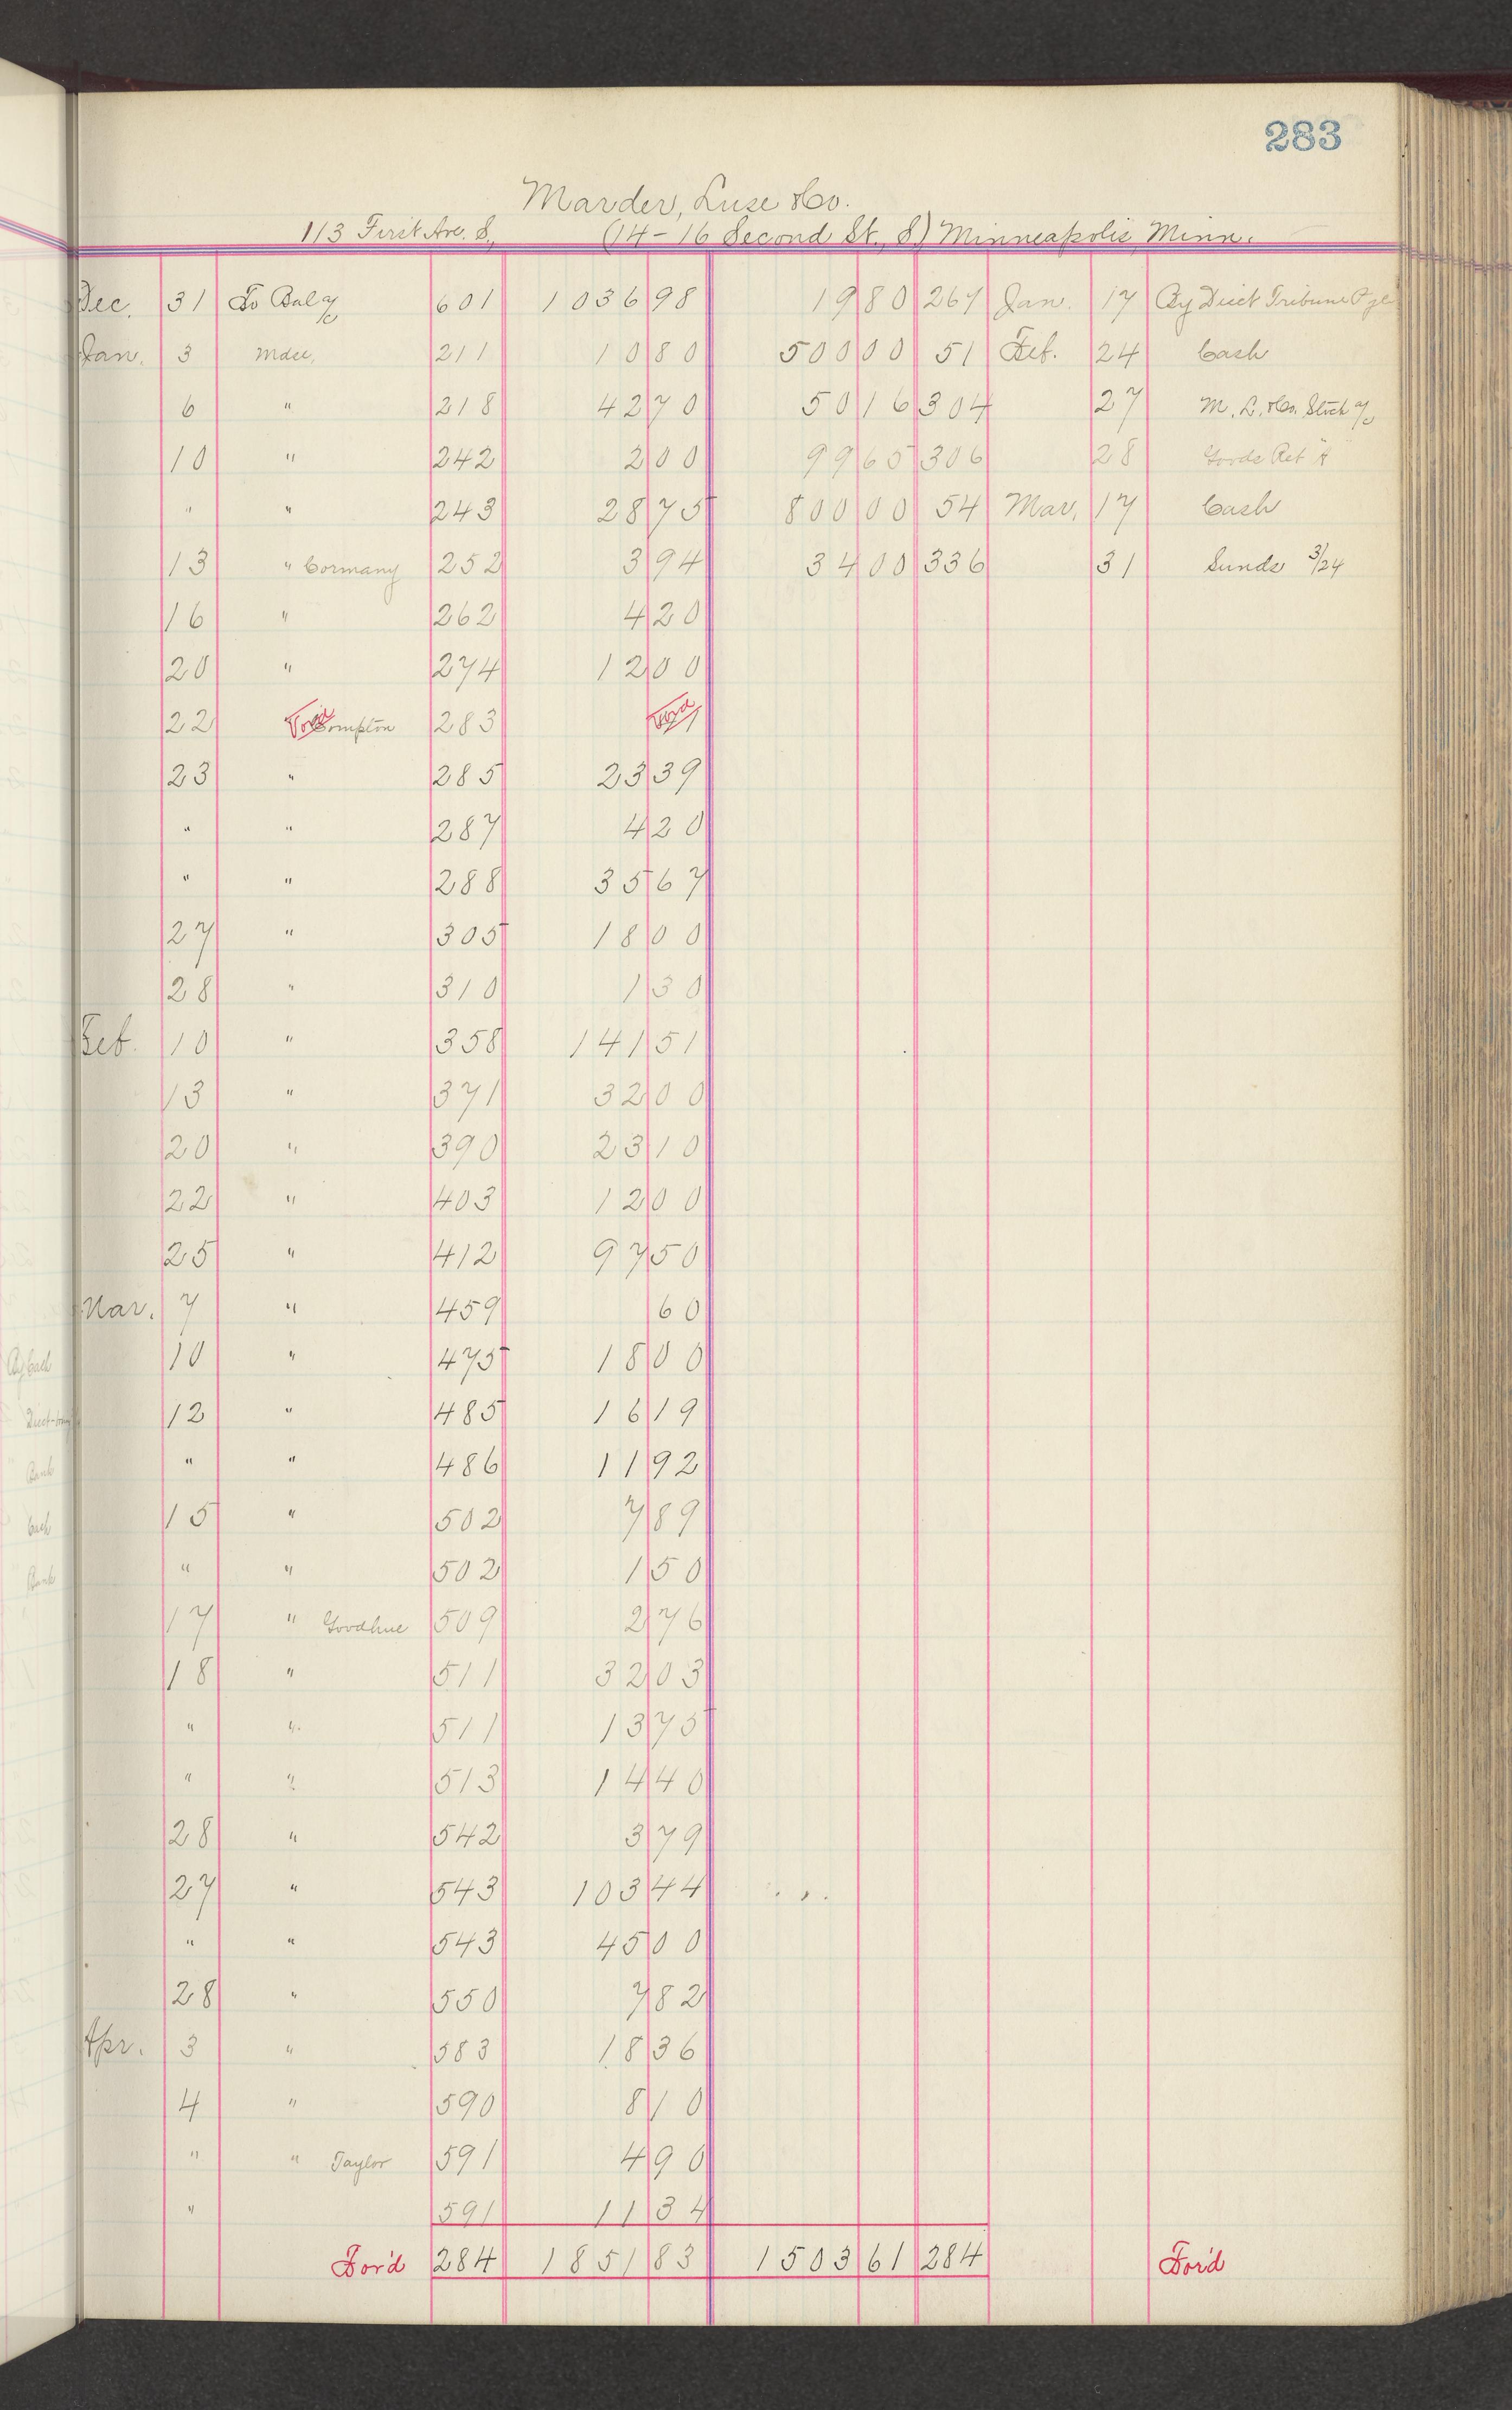 283
Marder, Luse & Co.
113 First Ave. S., (14-16 Second St., S.) Minneapolis, Minn.
Dec. 31 To Bal a/c 601 1036 98 19 80 267 Jan. 17 By Diect Tribune
Jan. 3 Mdse, 211 10 80 500 00 51 Feb. 24 Cash
6 " 218 42 70 50 16 304 27 M. L. & Co. Stock a/c
10 " 242 2 00 99 65 306 28 Goods Ret
" " 243 28 75 800 00 54 Mar, 17 Cash
13 " Cormany 252 3 94 34 00 336 31 Sunds 3/24
16 " 262 4 20
20 " 274 12 00
22 Void Compton 283 Void
23 " 285 23 39
" " 287 4 20
" " 288 35 67
27 " 305 18 00
28 " 310 1 30
Feb. 10 " 358 141 51
13 " 371 32 00
20 " 390 23 10
22 " 403 12 00
25 " 412 97 50
Mar. 7 " 459 60
10 " 475 18 00
12 " 485 16 19
" " 486 11 92
15 " 502 7 89
" " 502 1 50
17 " Goodhue 509 2 76
18 " 511 32 03
" " 511 13 75
" " 513 14 40
28 " 542 3 79
27 " 543 103 44
" " 543 45 00
28 " 550 7 82
Apr. 3 " 583 18 36
4 " 590 8 10
" " Taylor 591 4 90
" 591 11 34
For'd 284 1851 83 1503 61 284 For'd